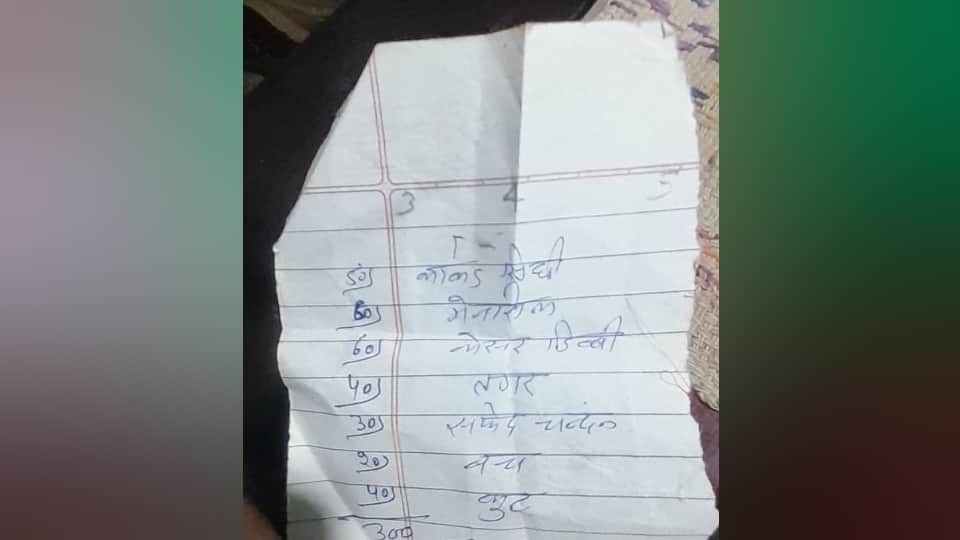 3 4 5
50) काकड सिंघी
60) मेनसील
60) केसर डिब्बी
40) तगर
30) सफेद चन्दन
20) वच
40) कुट
300